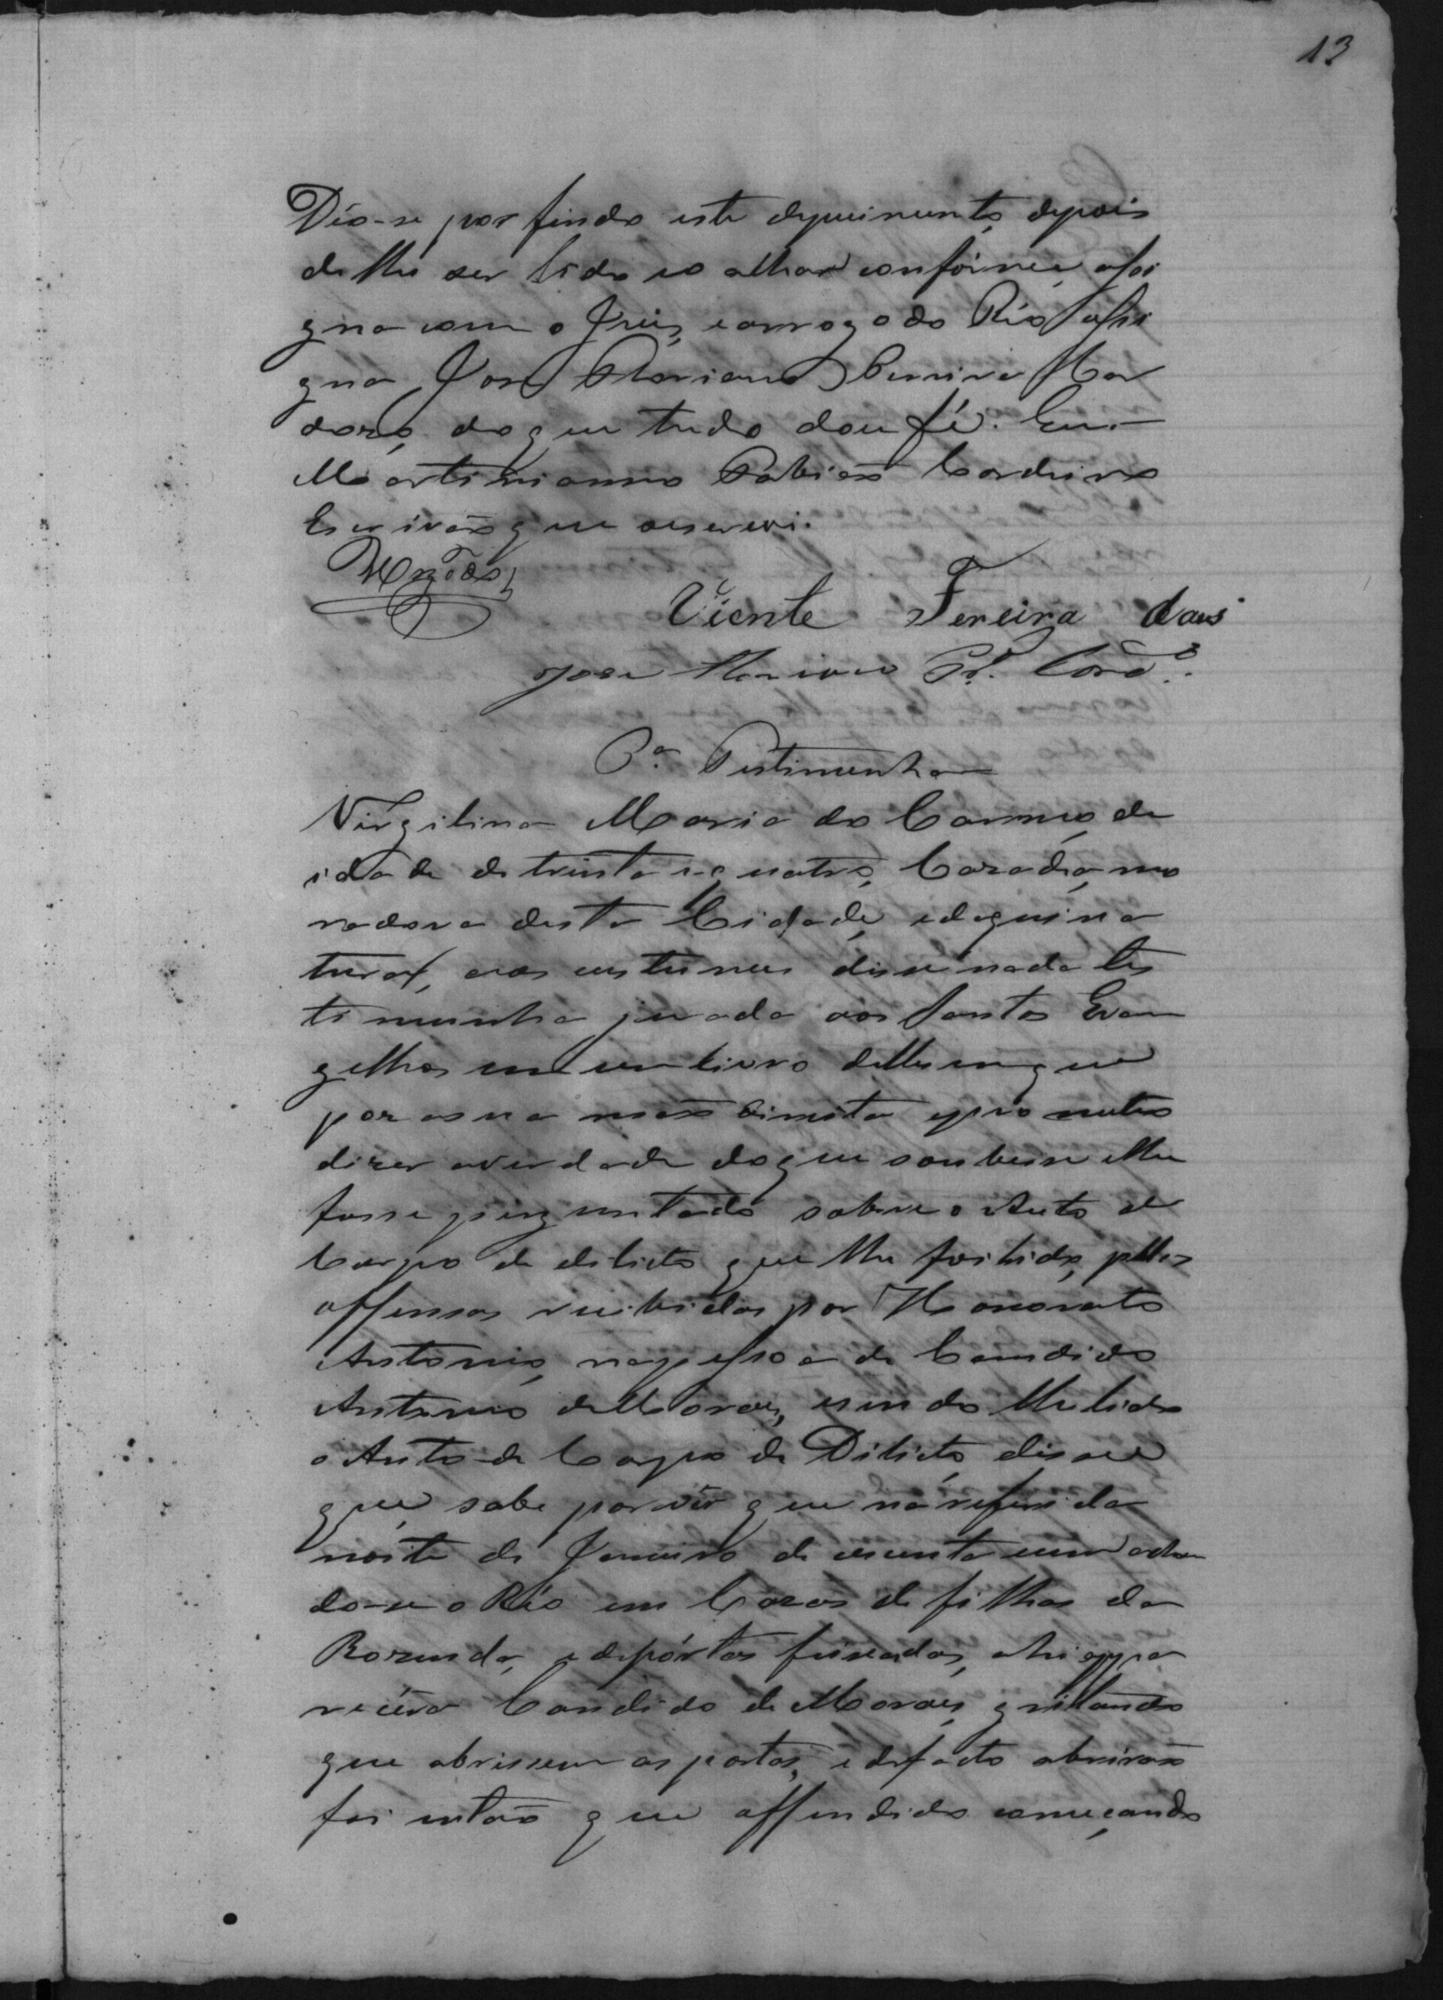 13
Déo-se por findo este depoimento, depois
de lhe ser lido e o achar conforme, assi
gna com o Juiz, e a rogo do Réo assi
gna José Mariano Pereira Cor
doso, do que tudo dou fé. Eu
Martinianno Fabião Cordeiro
Escrivão que escrevi.
Vicente Fereira
Jose Mariano Pra. Cord.o
3.ª Testimunha
Virgilina Maria do Carmo, de
idade de trinta e quatro, Casada, mo
radora desta Cidade, e daqui na
tural, aos custumes disse nada tes
timunha jurada aos Santos Evan
gelhos em um livro delles em que
por a sua mão direita e prometteo
dizer a verdade do que soubesse e lhe
fosse preguntado sobre o Auto de
Corpo de delicto que lhe foi lido, pellas
offensas recibidas por Honorato
Antonio, na pessoa de Candido
Antonio de Moraes, e sendo lhe lido
o Auto de Corpo de Dilicto, disse
que sabe por vêr que na referida
noite de Janeiro de oicenta e um achan
do-se o Réo em Casa de filhas da
Rozenda, e de pórtas fixadas, ahi appa
recêra Candido de Moraes, gritando
que abrissem as portas, e de facto abrirão
foi então que offendido começando